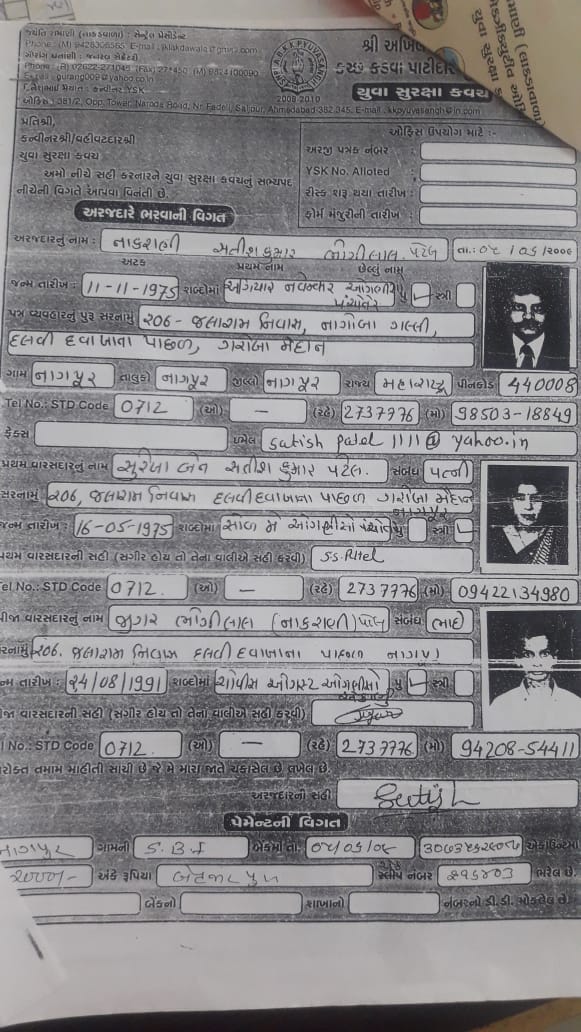 જયંતિ રામાણી (લાકડાવાળા) : સેન્ટ્રલ પ્રેસીડેન્ટ
Phone: (M) 9428306565 E-mail : jklakdawala@gmail.com
Phone : (R) 02622-271045 (Fax) 271450 (M) 9824100090
E-mail : gurang009@yahoo.co.in
કન્વીનર YSK
ઓફિસ : 381/2, Opp. Tower, Naroda Road, Nr. Fadeli, Saijpur, Ahmedabad-382 345. E-mail : kkpyuvasangh@in.com
શ્રી અખિલ
કચ્છ કડવા પાટીદાર
યુવા સુરક્ષા કવચ
2008-2010
પ્રતિશ્રી,
કન્વીનરશ્રી/વહીવટદારશ્રી
યુવા સુરક્ષા કવચ
અમો નીચે સહી કરનારને યુવા સુરક્ષા કવચનું સભ્યપદ
નીચેની વિગતે આપવા વિનંતી છે.
ઓફિસ ઉપયોગ માટે :-
અરજી પત્રક નંબર :
YSK No. Alloted :
રીસ્ક શરૂ થયા તારીખ :
ફોર્મ મંજુરીની તારીખ :
અરજદારે ભરવાની વિગત
અરજદારનું નામ : નાકરાણી સતીશકુમાર ભીમજીલાલ પટેલ તા.: ૦૫/૦૬/૨૦૦૯
અટક પ્રથમ નામ છેલ્લું નામ
જન્મ તારીખ : 11-11-1975 શબ્દોમાં અગિયાર નવેમ્બર ઓગણીસો પંચોતેર પુ સ્ત્રી
પત્ર વ્યવહારનું પુરૂ સરનામું ૨૦૬- જલારામ નિવાસ, નાગોબા ગલ્લી,
દલવી દવાખાના પાછળ, ગરોબા મેદાન
ગામ નાગપૂર તાલુકો નાગપૂર જીલ્લો નાગપૂર રાજ્ય મહારાષ્ટ્ર પીનકોડ 440008
Tel No.: STD Code 0712 (ઓ) — (રહે) 2737776 (મો) 98503-18849
ફેક્સ ઇમેલ satish patel 1111@yahoo.in
પ્રથમ વારસદારનું નામ સુરેખા બેન સતીશ કુમાર પટેલ. સંબંધ પત્ની
સરનામું 206, જલારામ નિવાસ દલવી દવાખાના પાછળ ગરોબા મેદાન નાગપુર
જન્મ તારીખ : 16-05-1975 શબ્દોમાં સોળ મે ઓગણીસો પંચોતેર પુ સ્ત્રી
પ્રથમ વારસદારની સહી (સગીર હોય તો તેના વાલીએ સહી કરવી) S.S. Patel
Tel No.: STD Code 0712. (ઓ) — (રહે) 2737776 (મો) 09422134980
બીજા વારસદારનું નામ જીગર ભીમજીલાલ (નાકરાણી) પટેલ સંબંધ ભાઈ
સરનામું ૨૦૬. જલારામ નિવાસ દલવી દવાખાના પાછળ નાગપુર
જન્મ તારીખ : 24/08/1991 શબ્દોમાં ચોવીસ ઓગસ્ટ ઓગણીસો પુ સ્ત્રી
બીજા વારસદારની સહી (સગીર હોય તો તેના વાલીએ સહી કરવી)
Tel No.: STD Code 0712. (ઓ) — (રહે) 2737776 (મો) 94208-54411
ઉપરોક્ત તમામ માહીતી સાચી છે જે મે મારા જાતે ચકાસેલ છે. લખેલ છે.
અરજદારની સહી Satish
પેમેન્ટની વિગત
નાગપુર ગામની S.B.I બેંકમાં તા. ૦૫/૦૬/૦૯ એકાઉન્ટમાં
2000/- અંકે રૂપિયા બે હજાર પુરા સ્લીપ નંબર ભરેલ છે.
બેંકનો શાખાનો નંબરનો ડી.ડી. મોકલેલ છે.